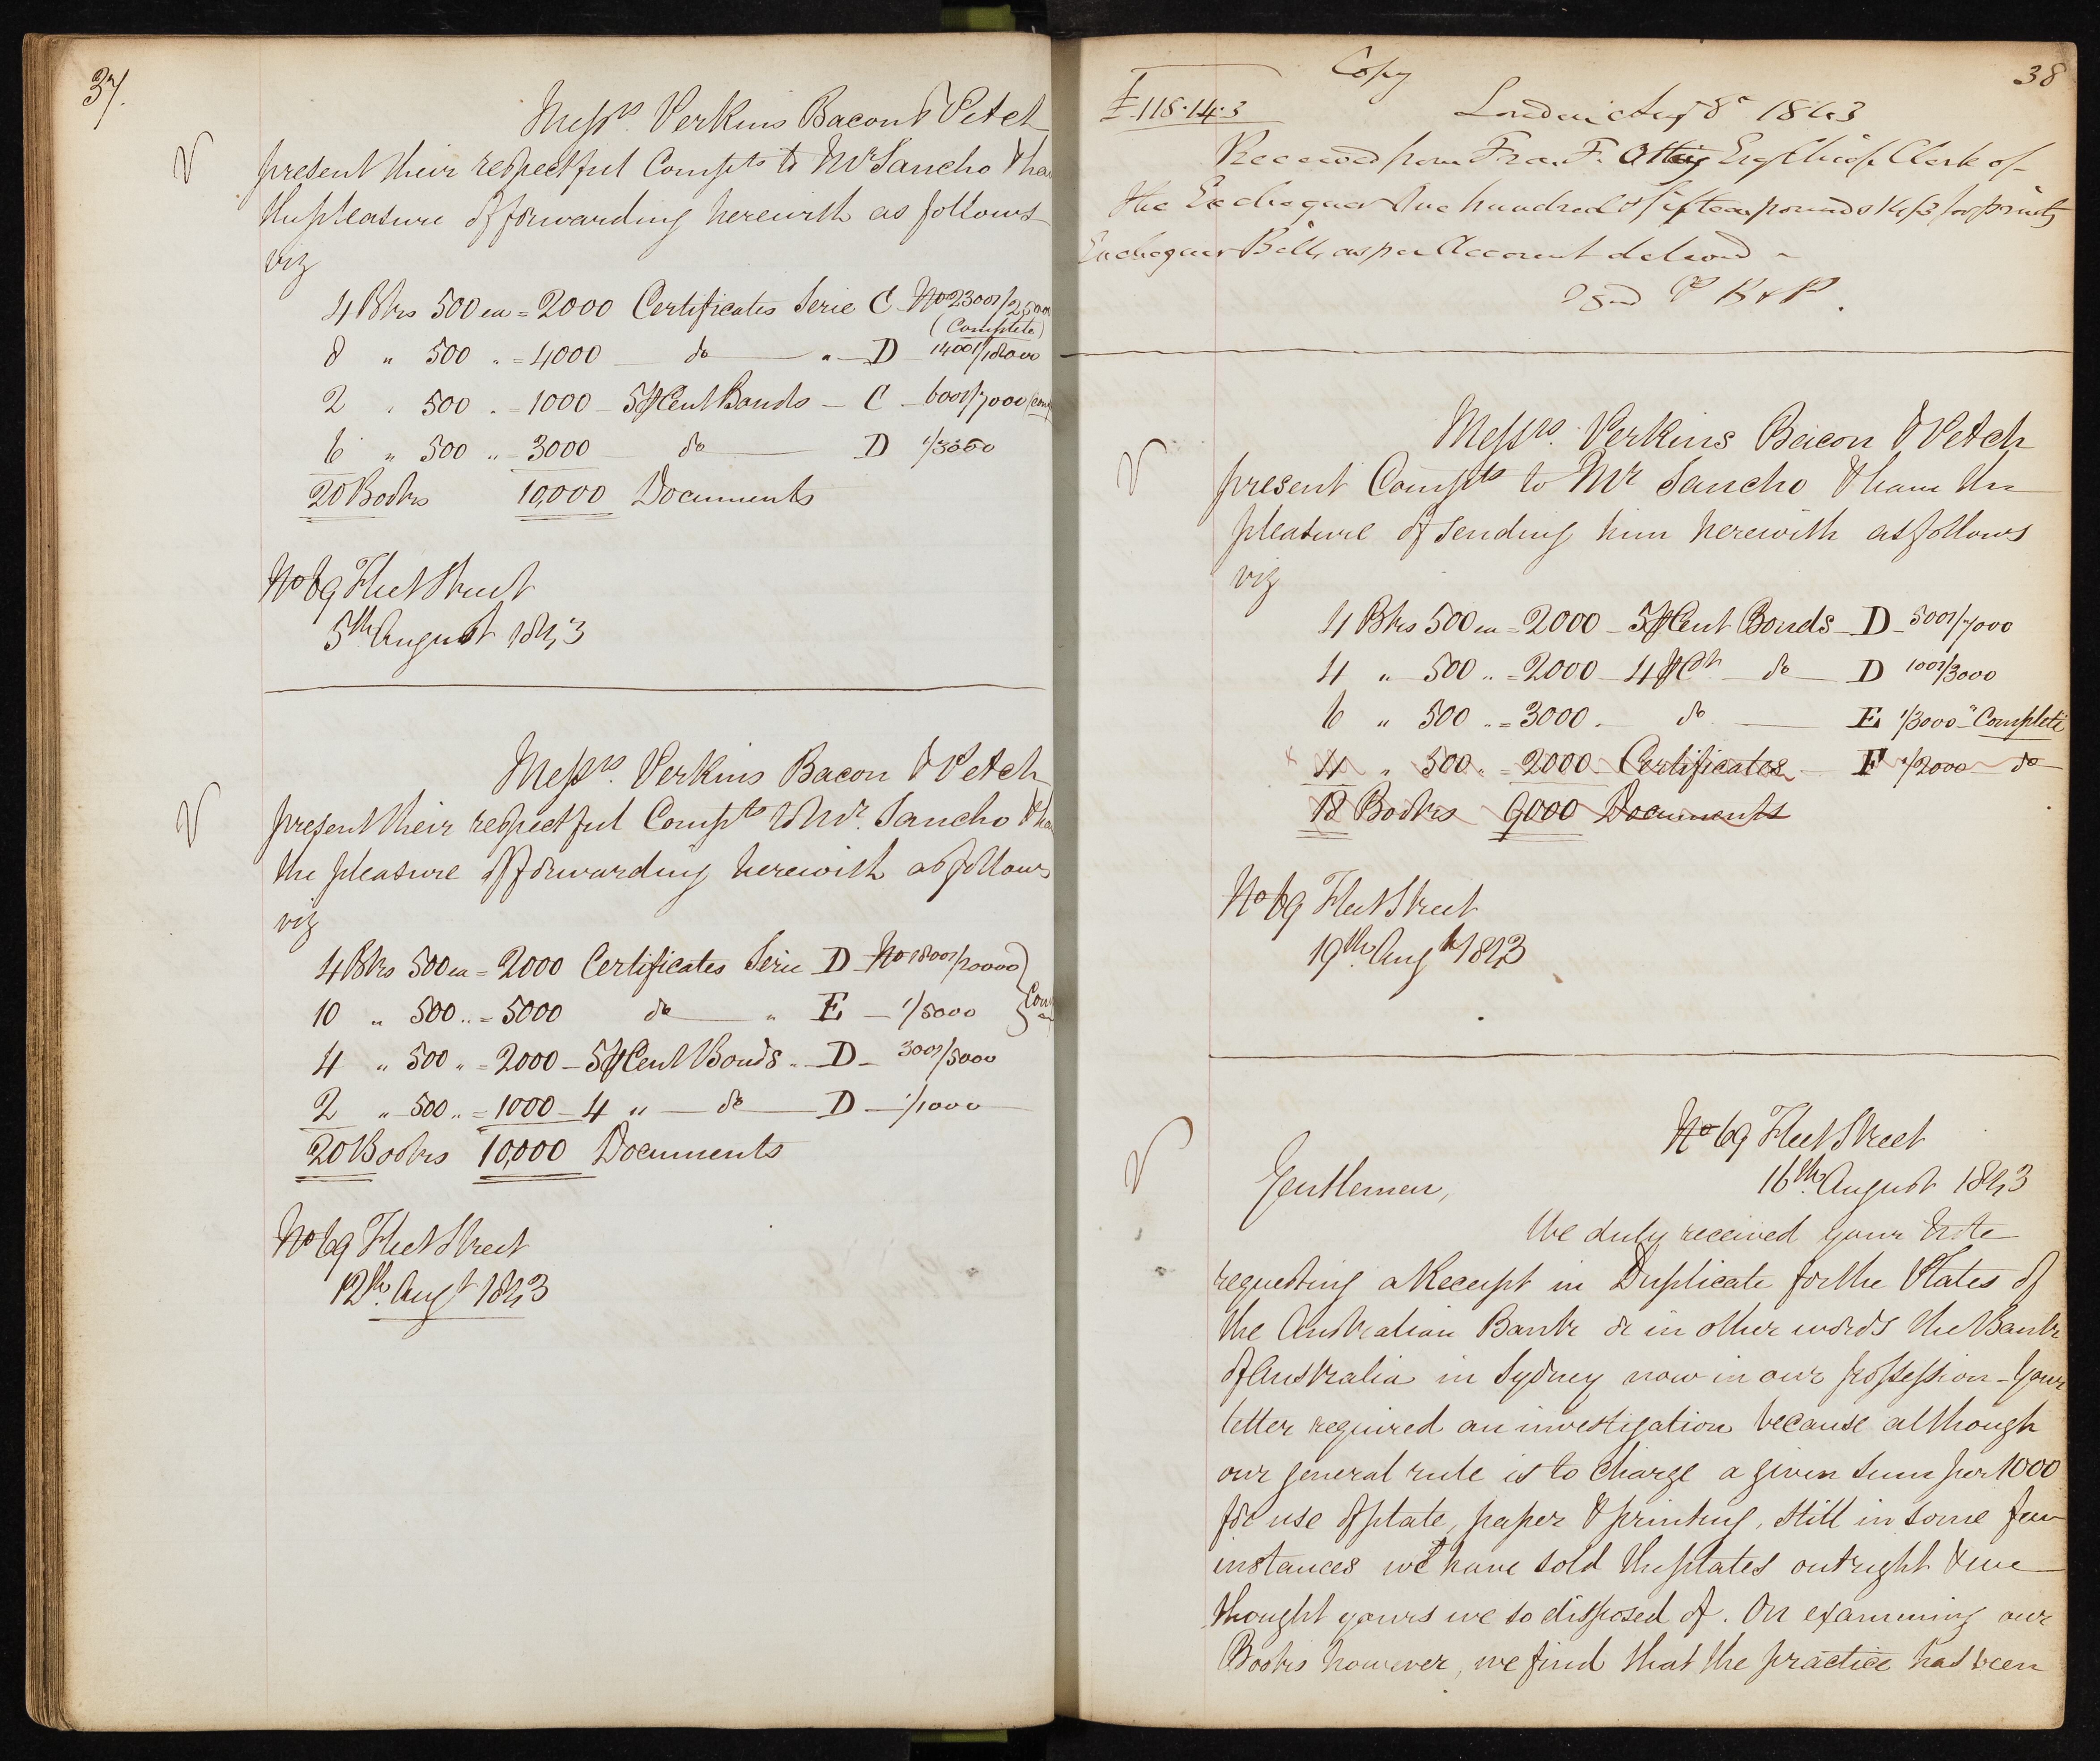 37.
Messrs. Perkins Bacon & Petch
present their respectful Compts to Mr Sancho & have
the pleasure of forwarding herewith as follows
viz
4 Bks 500 ea = 2000 Certificates Serie C No 23001/25000
(Complete)
8 " 500 " = 4000 do " D 14001/18000
2 " 500 " = 1000 5 P Cent Bonds C 6001/7000
6 " 500 " 3000 do D 1/3000
20 Books 10,000 Documents
No 69 Fleet Street
5th August 1843
Messrs. Perkins Bacon & Petch
present their respectful Compts to Mr. Sancho & have
the pleasure of forwarding herewith as follows
viz
4 Bks 500 ea = 2000 Certificates Serie D No 18001/20000
10 " 500 " = 5000 do " E 1/5000
4 " 500 " = 2000 5 P Cent Bonds " D 3001/5000
2 " 500 " = 1000 4 " do D 1/1000
20 Books 10,000 Documents
No 69 Fleet Street
12th. Augt 1843
38
Copy
£118.14.3
London Aug 8 1843
Received from Fra. F. Ottey Esq Chief Clerk of
the Exchequer One hundred & pounds 14/3 for printg
Exchequer Bills as per Account deliverd
P B & P.
Messrs. Perkins Bacon & Petch
present Compts to Mr Sancho & have the
pleasure of sending him herewith as follows
viz
4 Bks 500 ea = 2000 5 P Cent Bonds D 5001/7000
4 " 500 " = 2000 4 P Ct do D 1001/3000
6 " 500 " = 3000 do E 1/3000 " Complete
x 4 " 500 " = 2000 Certificates F 1/2000 do
18 Books 9000 Documents
No 69 Fleet Street
19th. Augt 1843
No 69 Fleet Street
16th. August 1843
Gentlemen,
We duly received your Note
requesting a Receipt in Duplicate for the Plates of
the Australian Bank or in other words the Bank
of Australia in Sydney now in our possession - Your
letter required an investigation because although
our general rule is to charge a given sum per 1000
for use of plate, paper & printing, still in some few
instances we have sold the plates outright & we
thought yours we so disposed of. On examining our
Books however, we find that the practice has been